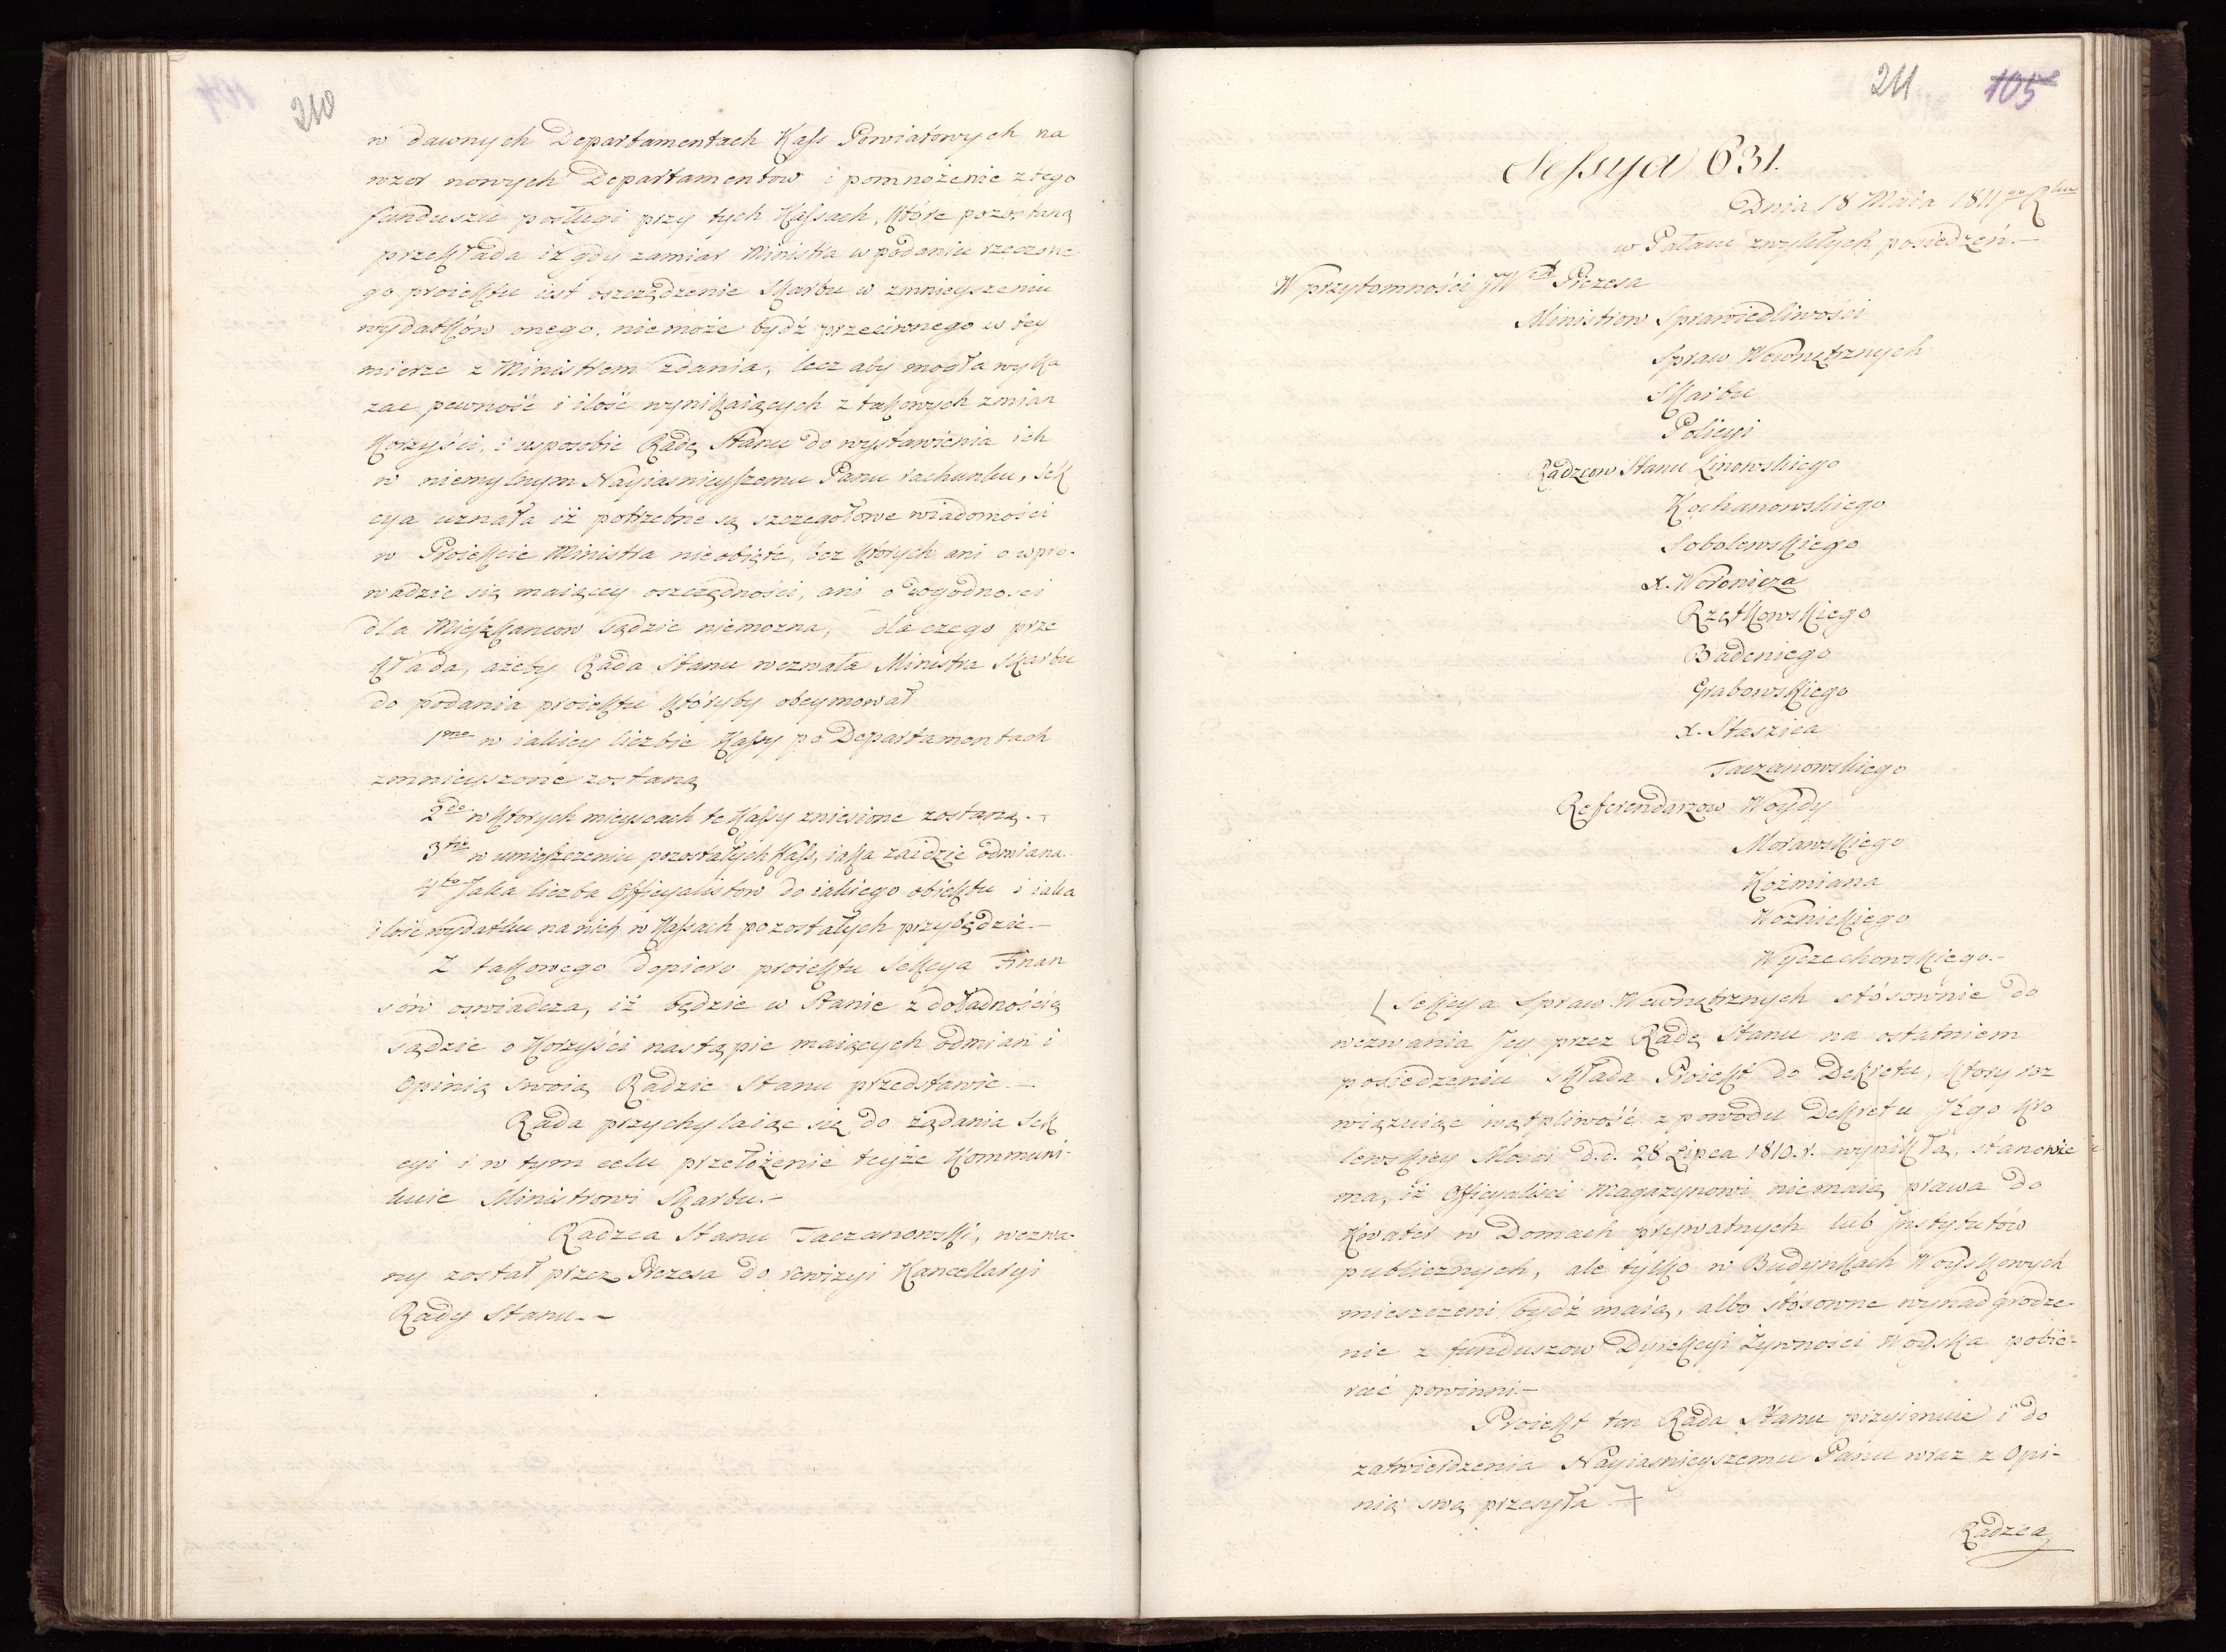 210
w dawnych Departamentach Kass Powiatowych na
wzor nowych Departamentow i pomnożenie z tego
funduszu posługi przy tych Kassach, które pozostaną
przekłada iż gdy zamiar Ministra w podaniu rzeczone
go proiektu iest oszczędzenie Skarbu w zmnieyszeniu
wydatków onego, niemoże bydź przeciwnego w tey
mierze z Ministrem zdania, lecz aby mogła wyka
zac pewność i ilość wynikaiących z takowych zmian
Korzyści, i usposobic Radę Stanu do wystawienia ich
w niemylnym Nayiasnieyszemu Panu rachunku, Sek
cya uznała iż potrzebne są szczegołowe wiadomości
w Proiekcie Ministra nieobięte, bez których ani o wpro-
wadzic się maiącey oszczędności, ani o dogodnosci
dla Mieszkancow sądzic niemozna, dla czego prze
kłada, ażeby Rada Stanu wezwała Ministra Skarbu
do podania proiektu któryby obeymował
1mo w iakiey liczbie Kassy po Departamentach
zmnieyszone zostaną
2do w ktorych mieyscach te Kassy zniesione zostaną.-
3tio w umieszczeniu pozostałych Kass, iaka zaidzie odmiana.
4to Jaka liczba Officyalistow do iakiego obiektu i iaka
ilość wydatku na nich w Kassach pozostałych przybędzie.-
Z takowego dopiero proiektu Sekcya Finan
sów oswiadcza, iż będzie w Stanie z doładnością
sądzic o Korzyści nastąpic maiących odmian i
Opinią swoią Radzie Stanu przedstawic.-
Rada przychylaiąc się do żądania Sek
cyi i w tym celu przełożenie teyże Kommuni-
kuie Ministrowi Skarbu.-
Radzca Stanu Taczanowski, wezwa-
ny został przez Prezesa do rewizyi Kancellaryi
Rady Stanu.-
211 105
Sessya 631.
Dnia 18 Maia 1811go Rku
w Pałacu zwykłych posiedzeń.-
W przytomności JW Prezesa
Ministrow Sprawiedliwości
Spraw Wewnętrznych
Skarbu
Policyi
Radzcow Stanu Linowskiego
Kochanowskiego
Sobolewskiego
x. Woronicza
Rzętkowskiego
Badeniego
Grabowskiego
x. Staszica
Taczanowskiego
Referendarzow Woydy
Morawskiego
Koźmiana
Woznickiego
Wyczechowskiego.-
Sekcya Spraw Wewnętrznych stósownie do
wezwania Jey przez Radę Stanu na ostatniem
posiedzeniu składa Proiekt do Dekretu, ktory roz
wiązuiąc wątpliwość z powodu Dekretu JKgo Kro
lewskiey Mosci d.d. 28 Lipca 1810.r. wynikłą, stanowic
ma, iż Officyaliści Magazynowi niemaią prawa do
Kwater w Domach prywatnych lub Jnstytutów
publicznych, ale tylko w Budynkach Woyskowych
mieszczeni bydź maią, albo stósowne wynadgrodze-
nie z funduszow Dyrekcyi Żywności Woyska pobie-
rać powinni.-
Proiekt ten Rada Stanu przyimuie i do
zatwierdzenia Nayiasnieyszemu Panu wraz z Opi-
nią swą przesyła
Radzca